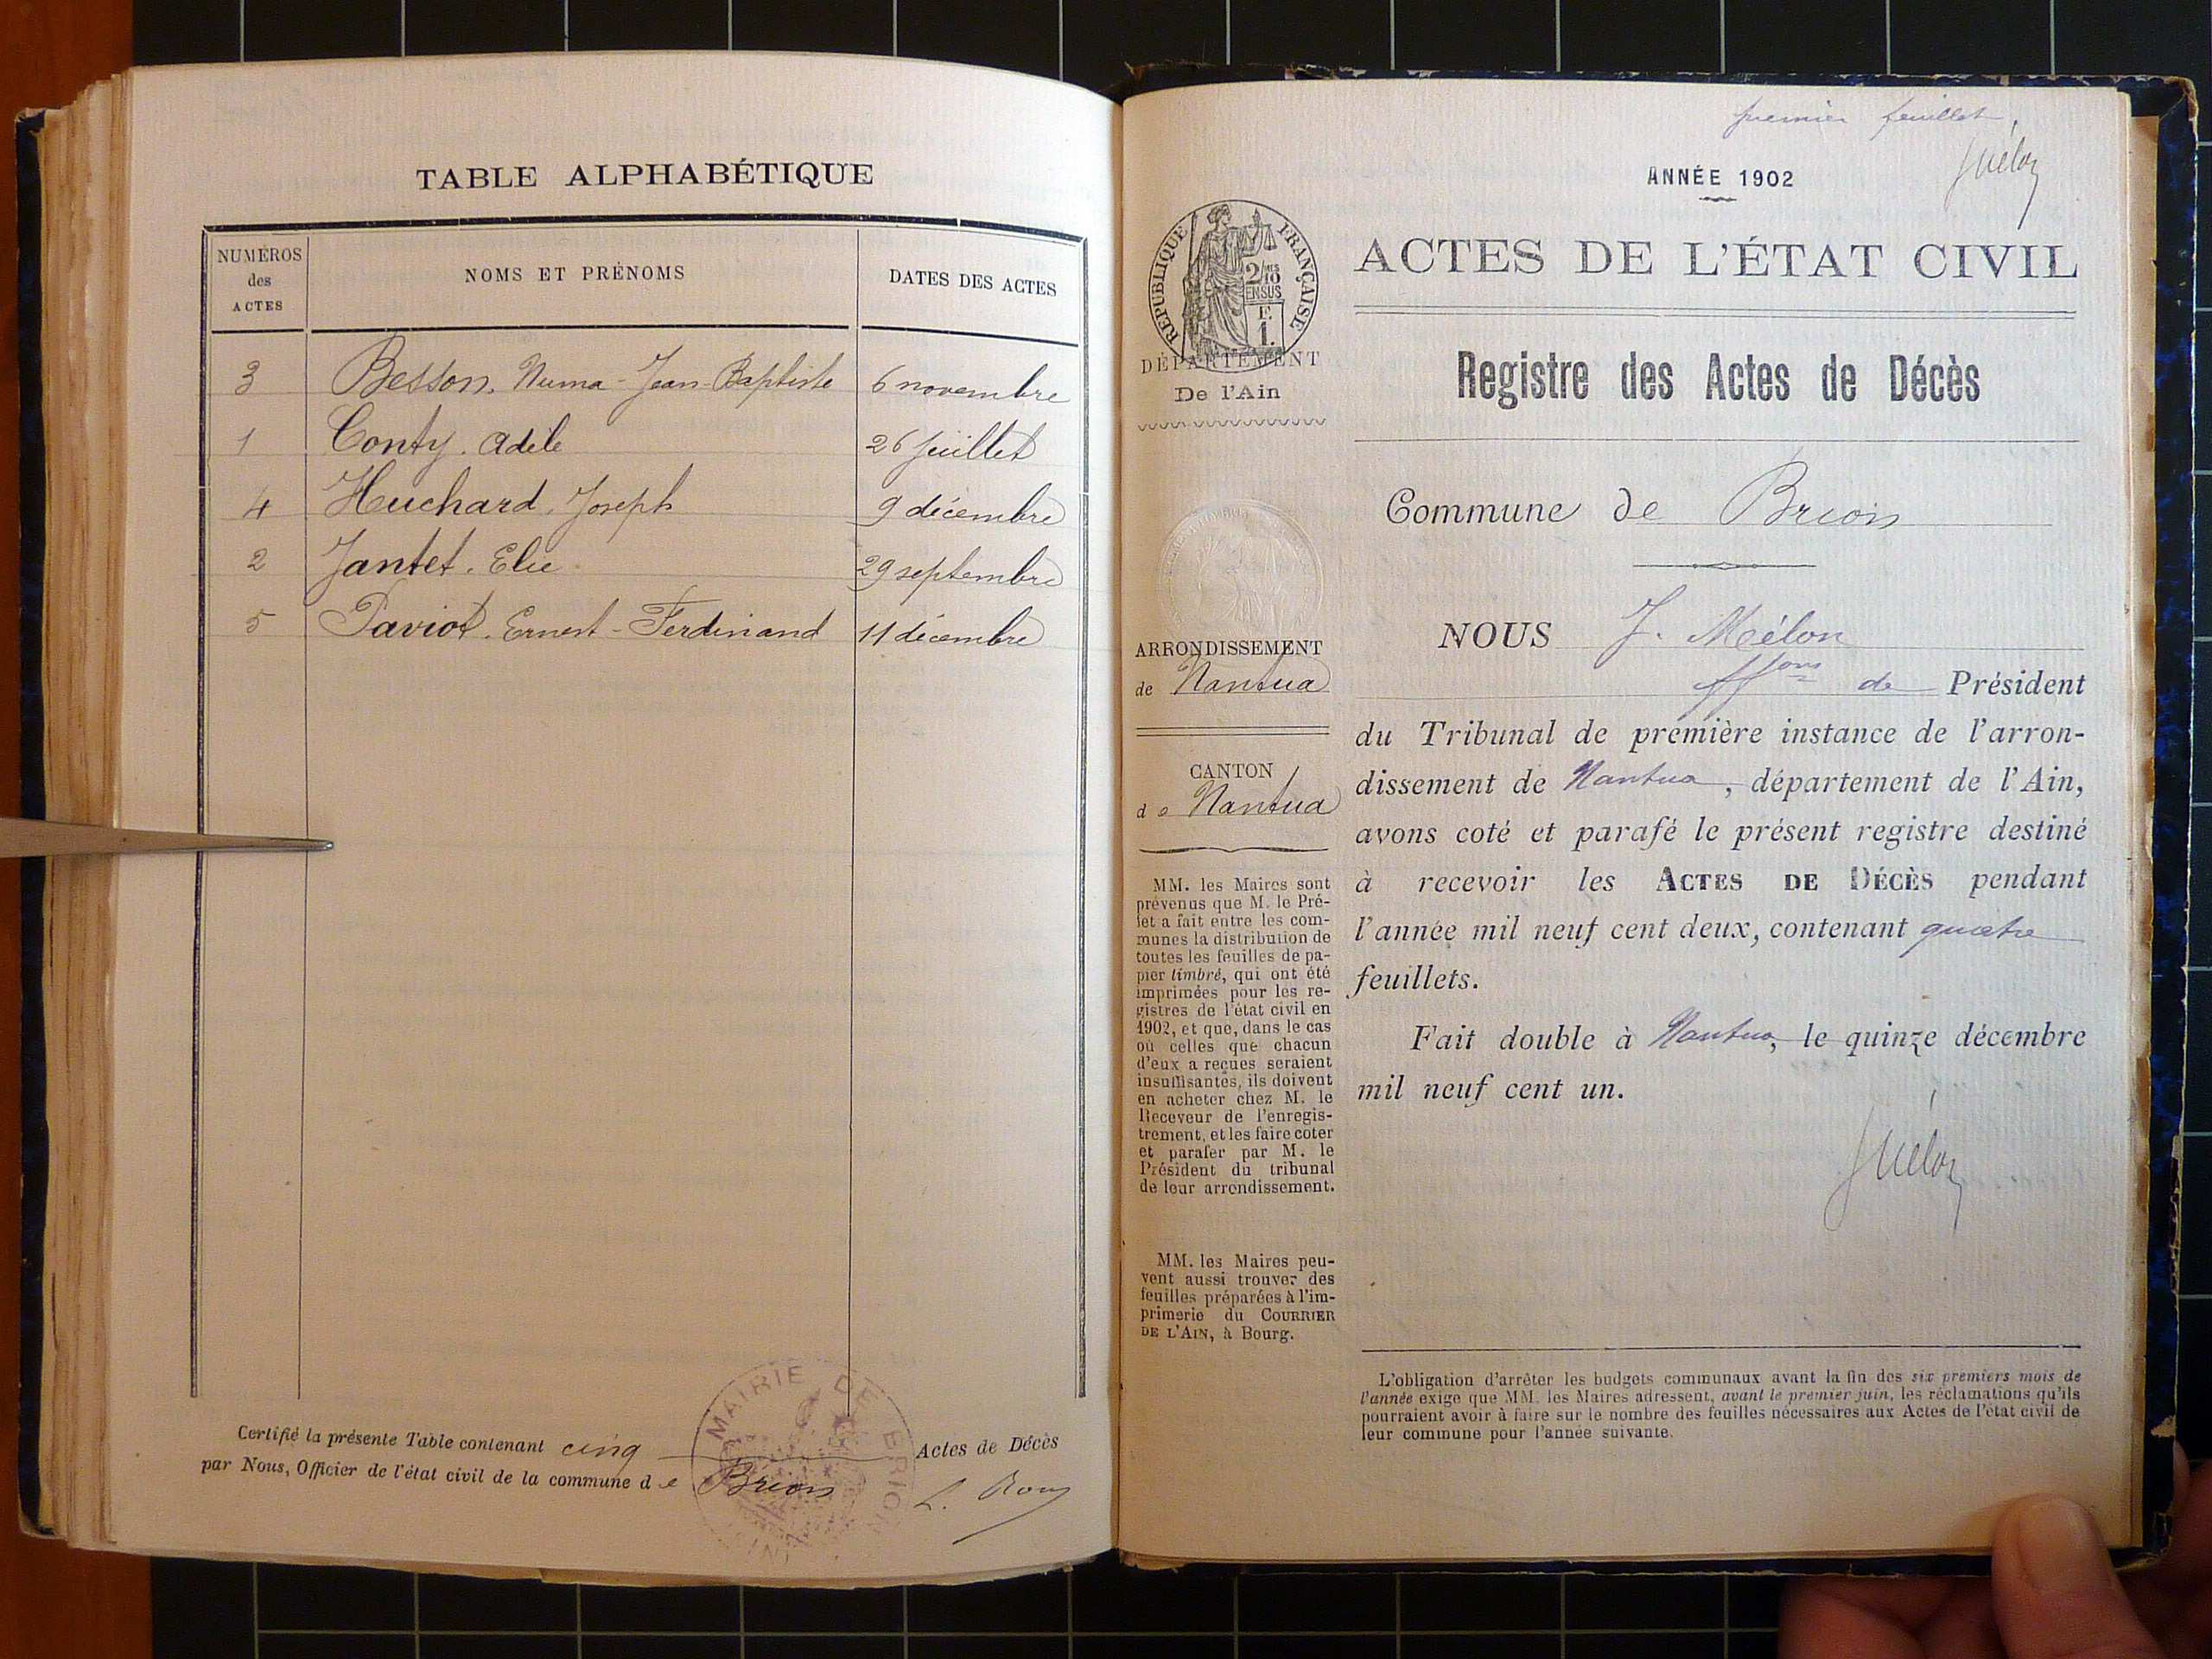 TABLE ALPHABÉTIQUE
NUMÉROS des ACTES
NOMS ET PRÉNOMS
DATES DES ACTES
3 Besson, Numa-Jean-Baptiste 6 novembre
1 Conty. Adèle 26 juillet
4 Huchard, Joseph 9 décembre
2 Jantet. Elie 29 septembre
5 Paviot. Ernest-Ferdinand 11 décembre
Certifié la présente Table contenant cinq Actes de Décès
par Nous, Officier de l'état civil de la commune de Brion
MAIRIE DE BRION
premier feuillet
ANNÉE 1902
ACTES DE L'ÉTAT CIVIL
Registre des Actes de Décès
Commune de Brion
NOUS J. Mélon
ffons de Président
du Tribunal de première instance de l'arron-
dissement de Nantua, département de l'Ain,
avons coté et parafé le présent registre destiné
à recevoir les ACTES DE DÉCÈS pendant
l'année mil neuf cent deux, contenant quatre
feuillets.
Fait double à Nantua, le quinze décembre
mil neuf cent un.
RÉPUBLIQUE FRANÇAISE
2/10mes
EN SUS
E.
1.
DÉPARTEMENT
De l'Ain
ARRONDISSEMENT
de Nantua
CANTON
de Nantua
MM. les Maires sont
prévenus que M. le Pré-
fet a fait entre les com-
munes la distribution de
toutes les feuilles de pa-
pier timbré, qui ont été
imprimées pour les re-
gistres de l'état civil en
1902, et que, dans le cas
où celles que chacun
d'eux a reçues seraient
insuffisantes, ils doivent
en acheter chez M. le
Receveur de l'enregis-
trement, et les faire coter
et parafer par M. le
Président du tribunal
de leur arrondissement.
MM. les Maires peu-
vent aussi trouver des
feuilles préparées à l'im-
primerie du COURRIER
DE L'AIN, à Bourg.
L'obligation d'arrêter les budgets communaux avant la fin des six premiers mois de
l'année exige que MM. les Maires adressent, avant le premier juin, les réclamations qu'ils
pourraient avoir à faire sur le nombre des feuilles nécessaires aux Actes de l'état civil de
leur commune pour l'année suivante.